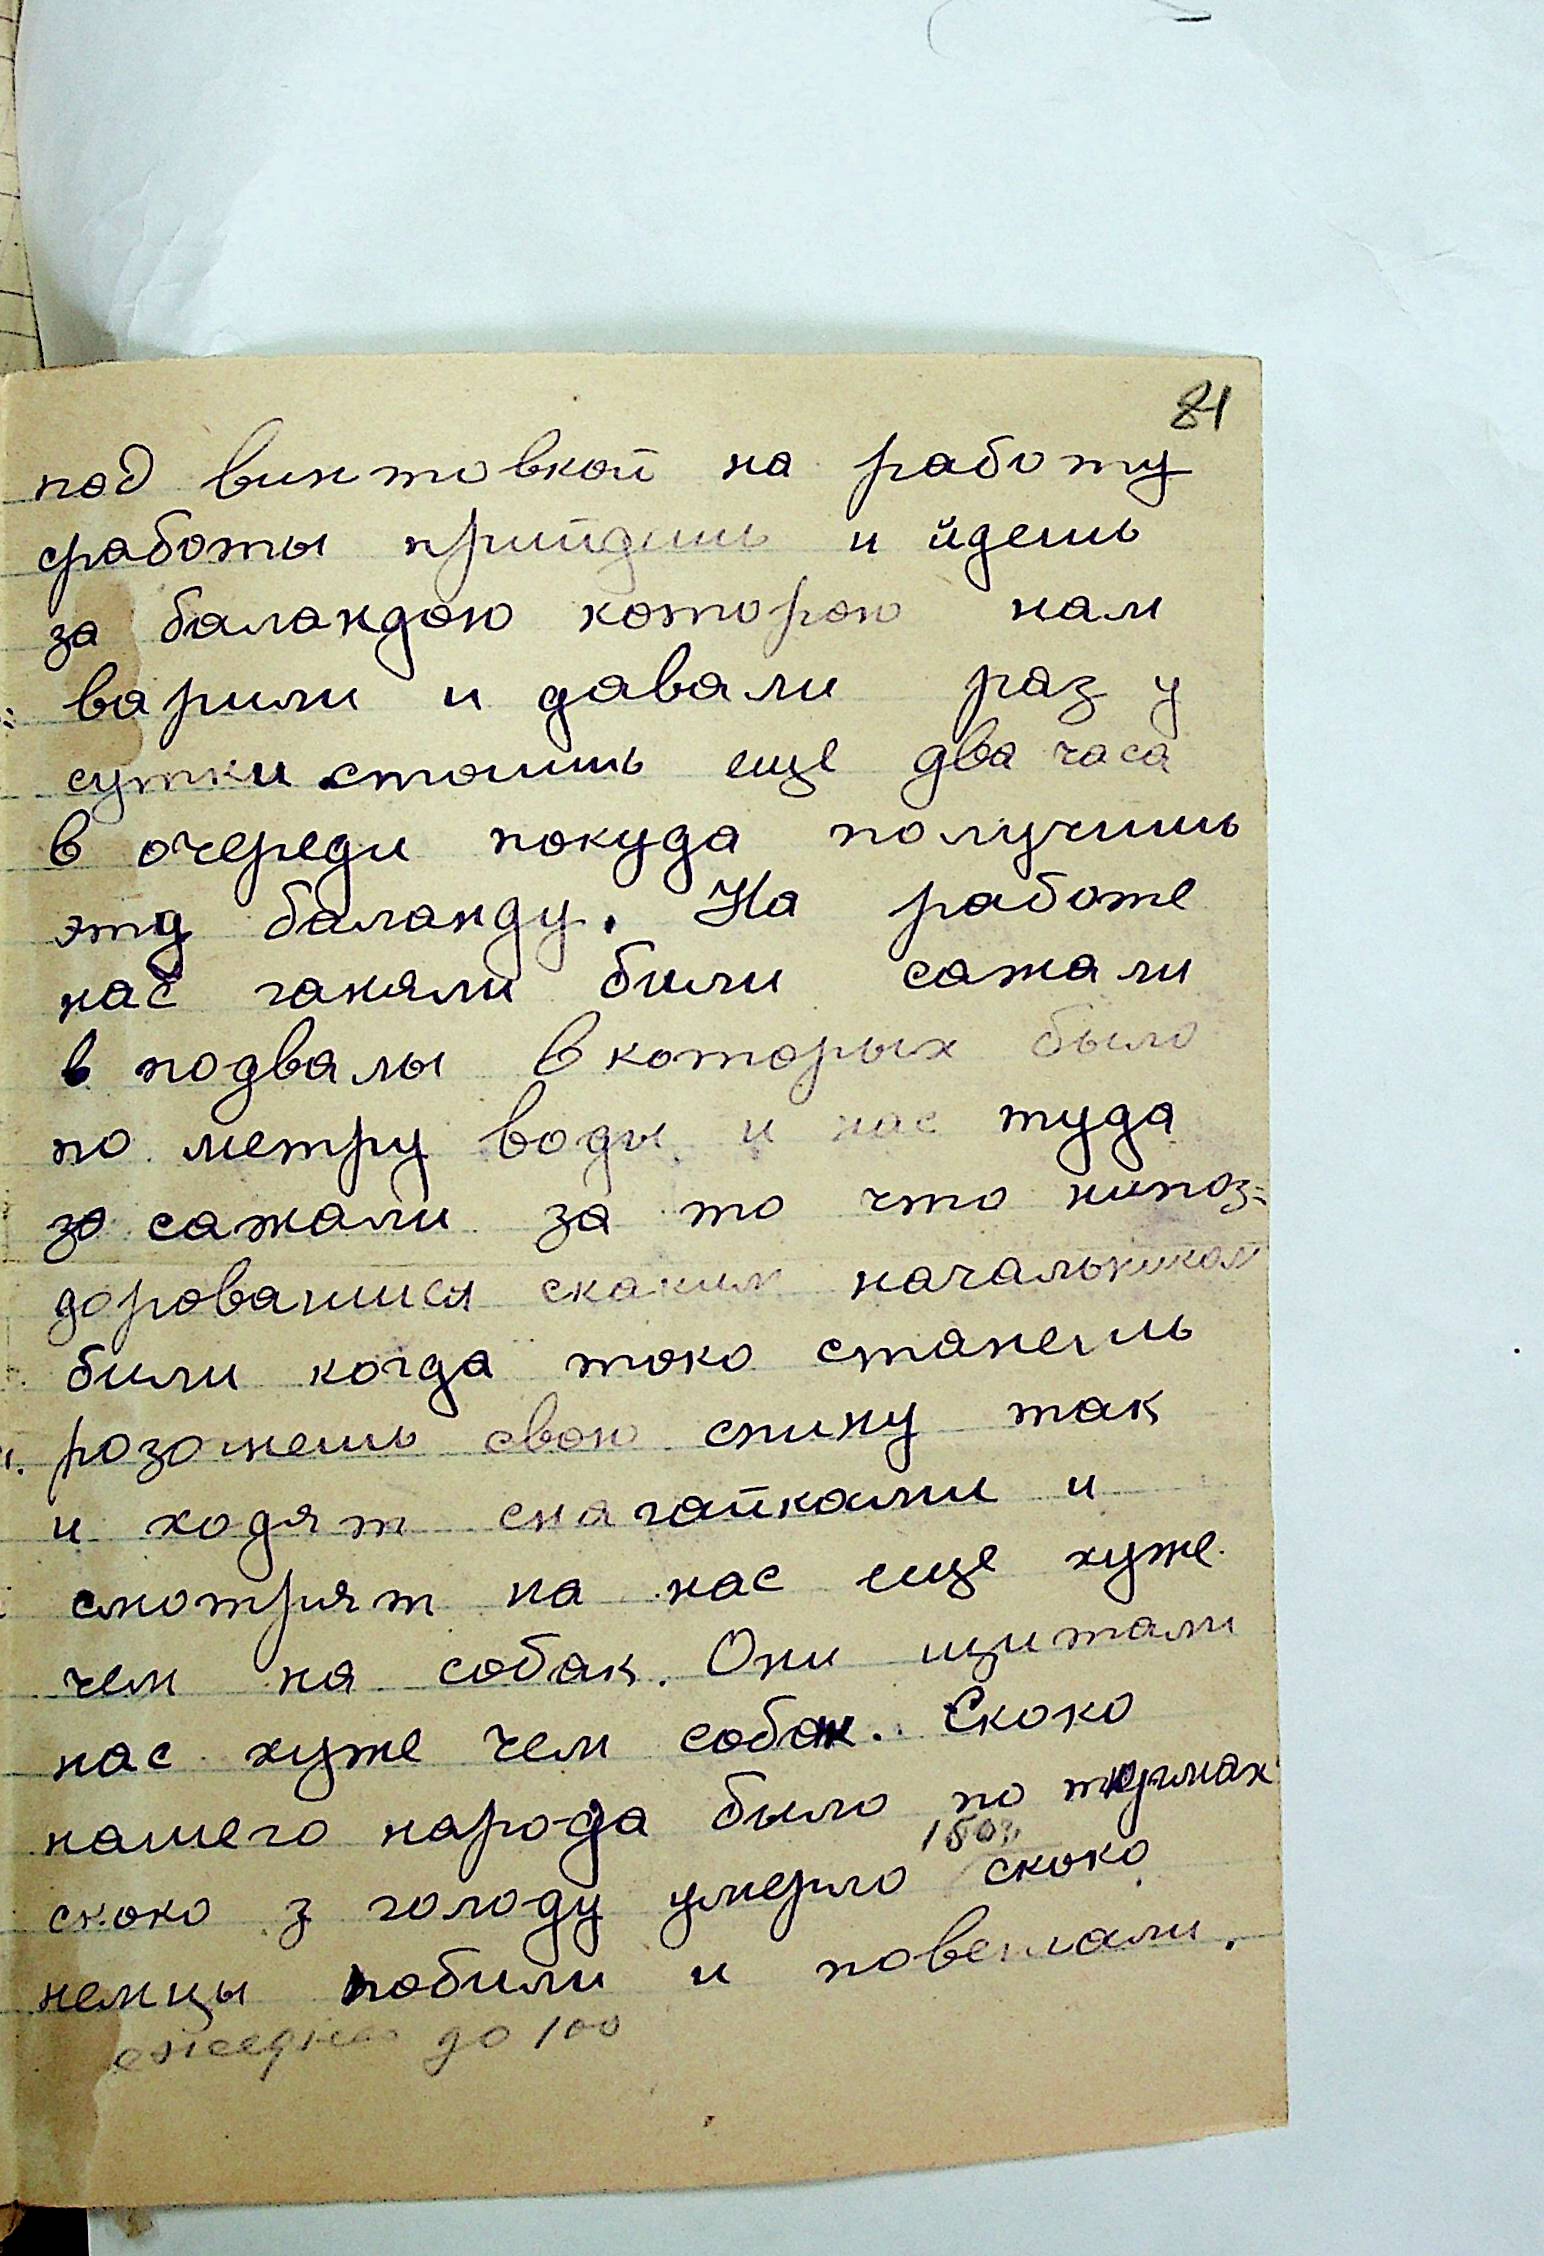 81
под винтовкой на работу
сработы прийдешь и йдешь
за баландою которою нам
варили и давали раз у
сутки стоишь еще два часа
в очереди покуда получишь
эту баланду. На работе
нас ганяли били сажали
в подвалы в которых было
по метру воды и нас туда
за сажали за то что нипоз=
доровашися скаким начальником
били когда токо станешь
розожнешь свою спину так
и ходят снагайками и
смотрят на нас еще хуже
чем на собак. Они щитали
нас хуже чем собак. Скоко
нашего народа было по тюрмах
скоко з голоду умерло скоко
немцы побили и повешали.
до 100